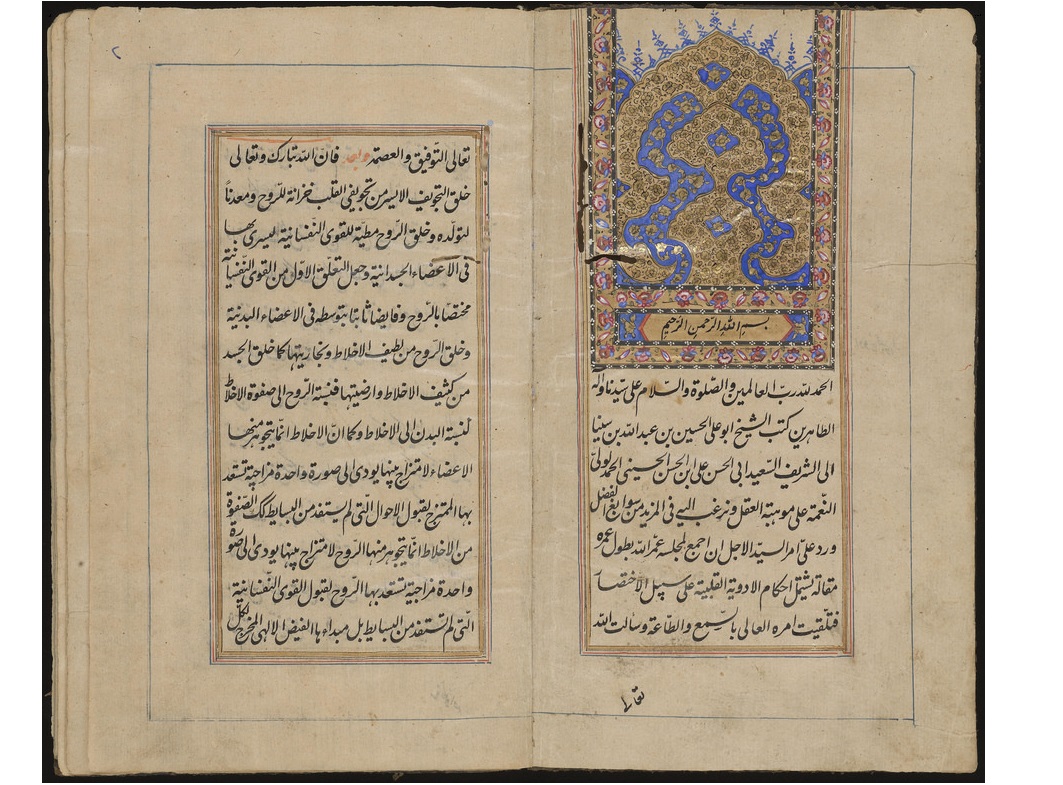 بسم الله الرحمن الرحيم
الحمد لله ربّ العالمين والصّلوة والسّلام على سيّدنا وآله
الطاهرين كتب الشيخ ابو على الحسين بن عبد الله بن سينا
الى الشريف السّعيد ابى الحسن على ابن الحسن الحسينى الحمد لولىّ
النّعمة على موهبة العقل ونرغب اليه فى المزيد من سوابغ الفضل
ورد علىّ امر السيّد الاجل ان اجمع لمجلسه عمّر الله بطول عمره
مقالة يشتمل احكام الادوية القلبية على سبيل الاختصار
فتلقيت امره العالى بالسّمع والطّاعة وسالت الله
تعالى
٢
تعالى التّوفيق والعصمة فانّ الله تبارك وتعالى
خلق التجويف الايسر من تجويفى القلب خزانة للرّوح ومعدناً
لتولّده وخلق الرّوح مطيّة للقوى النّفسانية ليسرى بها
فى الاعضاء الجسدانية وجعل التعلّق الاوّل من القوى النّفسانية
مختصّا بالرّوح وفايضا ثانيا بتوسطه فى الاعضاء البدنية
وخلق الرّوح من لطيف الاخلاط وبخاريتها كما خلق الجسد
من كثيف الاخلاط وارضيتها فنسبة الرّوح الى صفوة الاخلاط
كنسبة البدن الى الاخلاط وكما انّ الاخلاط انّما يتجوهر منها
الاعضاء لامتزاج بينها يودى الى صورة واحدة مزاجية تستعد
بها الممتزج لقبول الاحوال التّى لم يستفد من البسايط كك الصّفوة
من الاخلاط انّما يتجوهر منها الرّوح لامتزاج بينها يودى الى صورة
واحدة مزاجية تستعد بها الرّوح لقبول القوى النّفسانية
التّى لم تستفد من البسايط بل مبداءها الفيض الالهى المخرج لكلّ